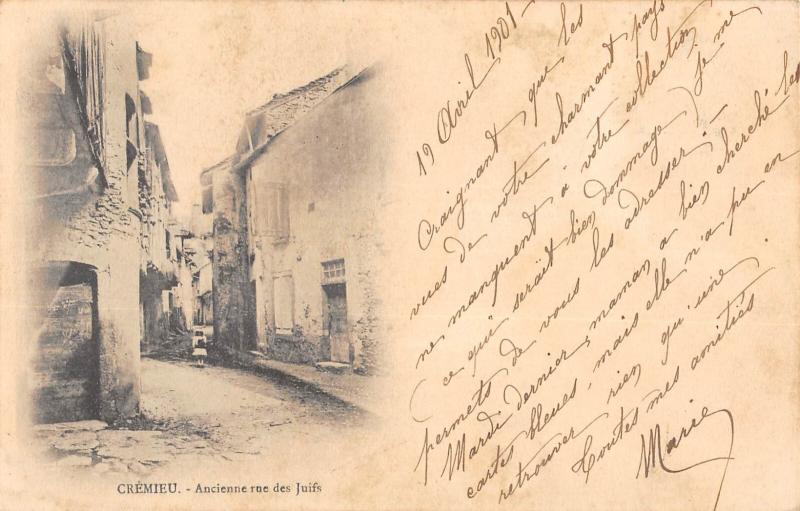 19 Avril 1901 -
Craignant que les
vues de votre charmant pays
ne manquent à votre collection,
(ce qui serait bien dommage) je me
permets de vous les adresser. -
Mardi dernier, maman a bien cherché les
cartes bleues, mais elle n'a pu en
retrouver rien qu'une.
Toutes mes amitiés
Marie
CRÉMIEU. - Ancienne rue des Juifs